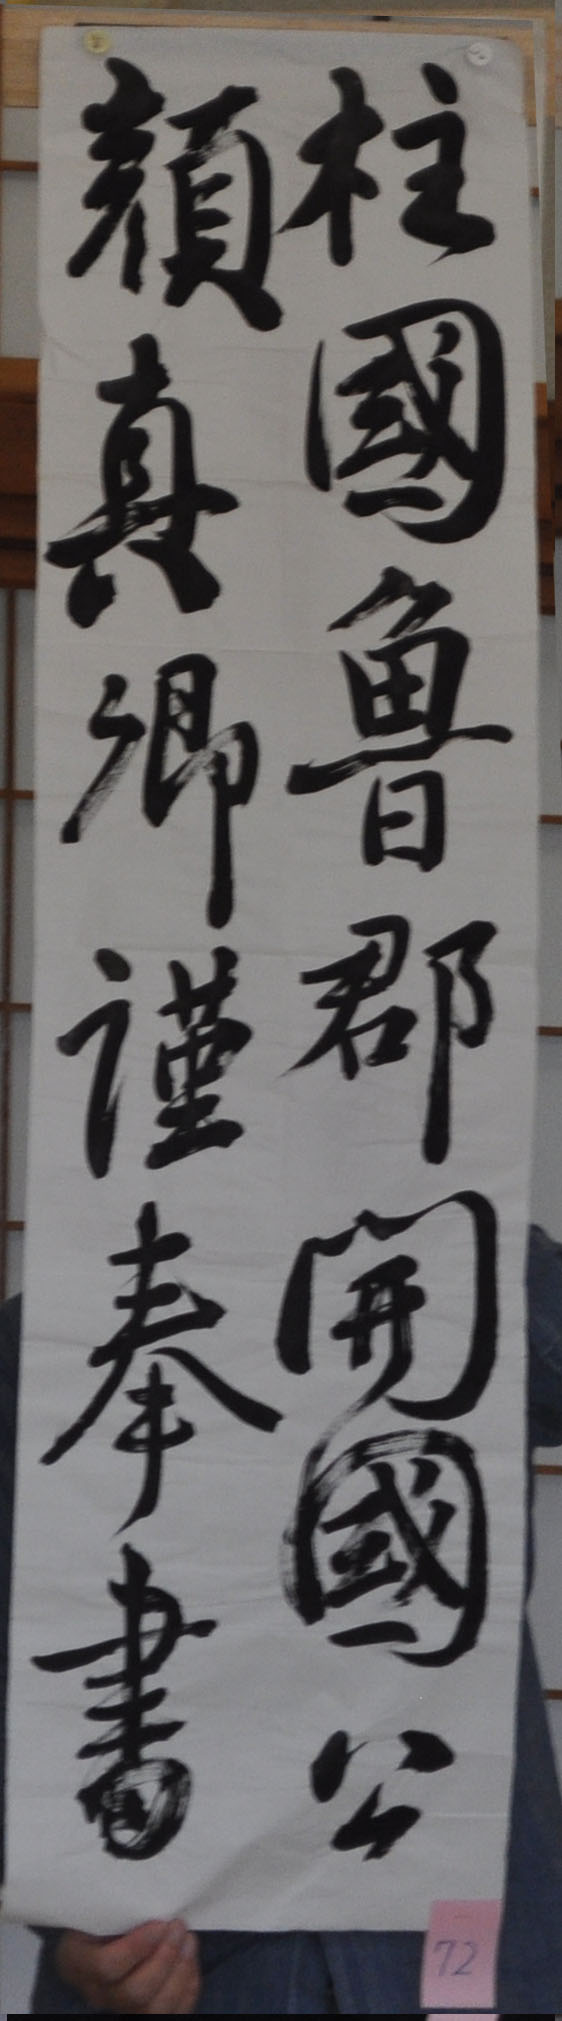 柱國魯郡開國公
顔真卿謹奉書
72